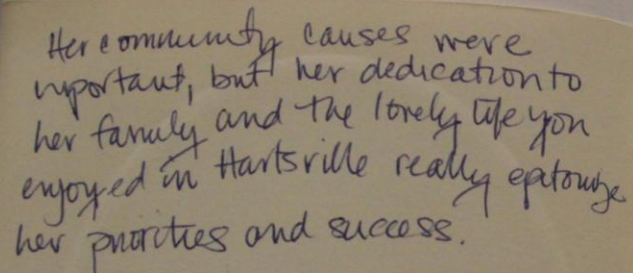 Her community causes were
important, but her dedication to
her family and the lovely life you
enjoyed in Hartsville really epitomize
her priorities and success.